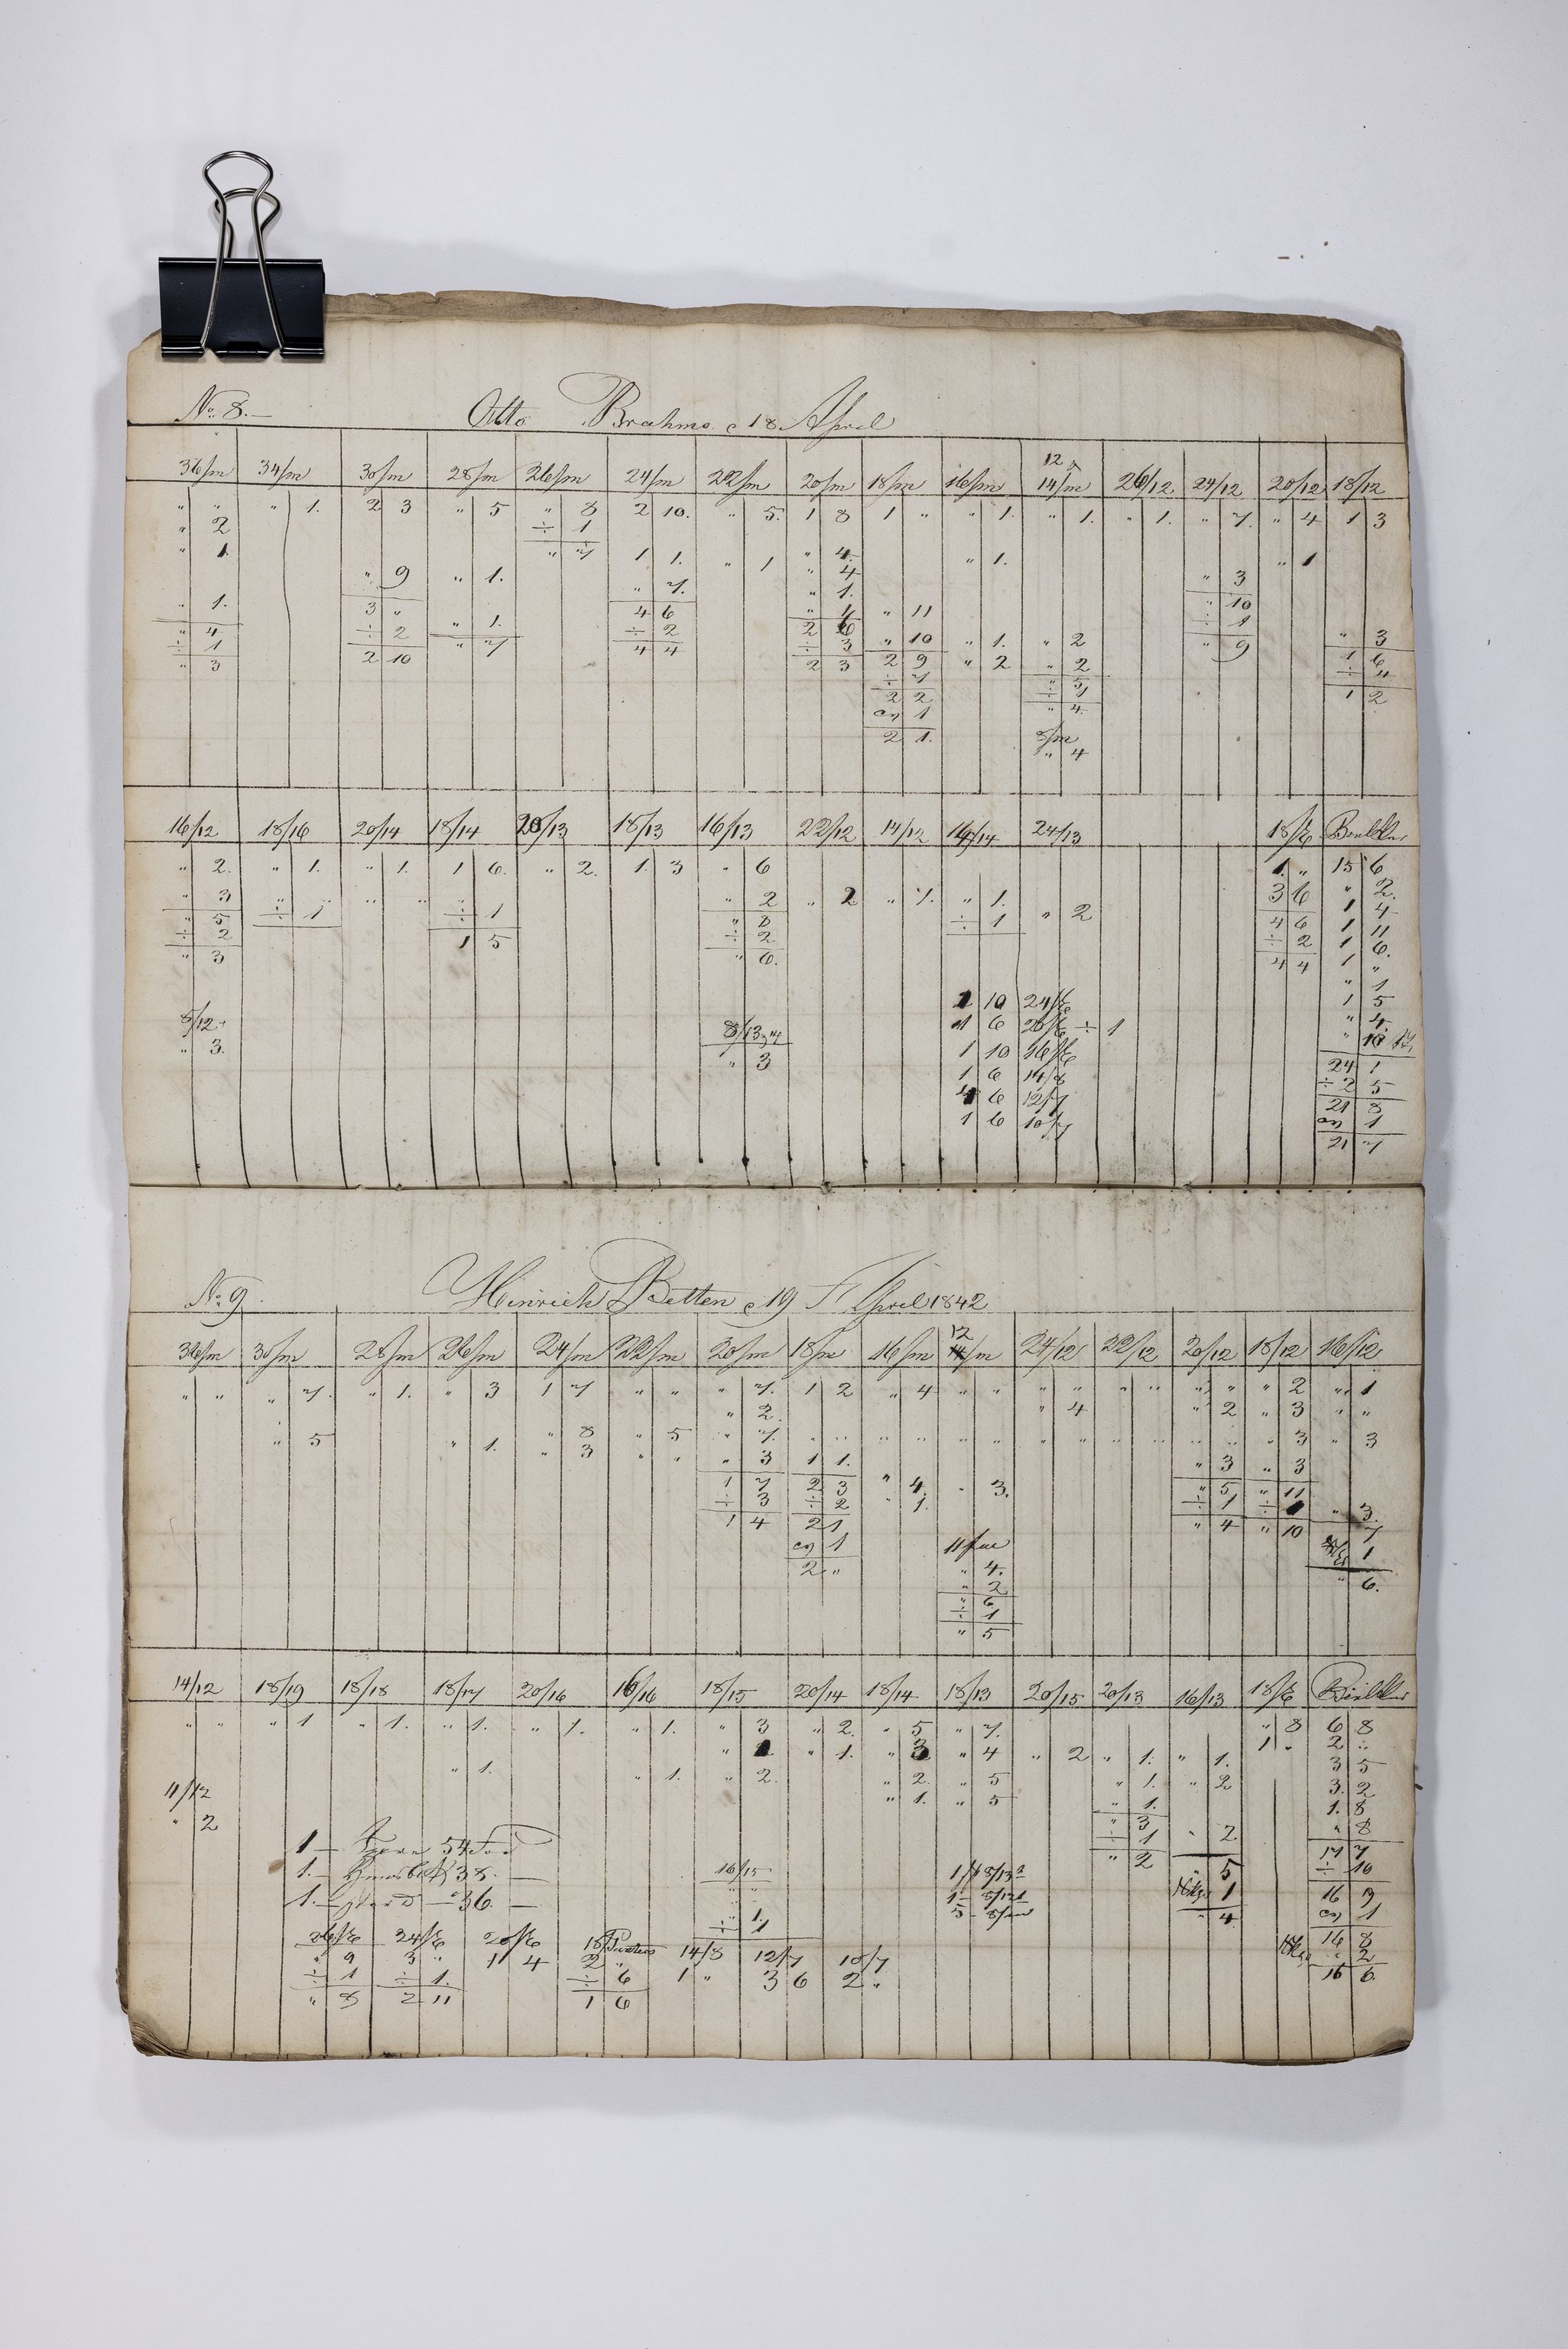 No. 8.— Otto Brahms c 18 April
36/m 34/m 30/m 28/m 26/m 24/m 22/m 20/m 18/m 16/m 12 a 14/m 26/12 24/12 20/12 18/12
" " " 1. 2 3 " 5 " 8 2 10. " 5. 1 8 1 " " 1. " 1. " 1. " 7. " 4 1 3
" 2 ÷ 1
" 1. " 7 1 1. " 1 " 4. " 1. " 1
" 9 " 1. " 7. " 4 " 3
" 1. " 1. " 10
3 " 4 6 " 4 " 11 ÷ 1
" 4 ÷ 2 " 1. ÷ 2 2 6 " 10 " 1. " 2 " 9 " 3
÷ 1 2 10 " 7 4 4 ÷ 3 2 9 " 2 " 2 1 6
" 3 2 3 ÷ 7 " 5 ÷ 4
2 2 ÷ 1 1 2
1 " 4
2 1. 8/m
" 4
16/12 18/16 20/14 18/14 20/13 18/13 16/13 22/12 14/12 16/14 24/13 18/6
" 2. " 1. " 1. 1 6. " 2. 1. 3 " 6 1. " 15 6
" 3 " " " " " 2 " 2 " 1. " 1. 3 6 " 2.
" 5 ÷ 1 ÷ 1 " 8 ÷ 1 " 2 4 6 1 4
÷ 2 1 5 ÷ 2 ÷ 2 1 11
" 3 " 6. 4 4 1 6.
1 "
" 1
1 10 24/6 1 5
8/12 8/13 1 6 20/6 ÷ 1 " 4
" 3. " 3 1 10 16/6 " 10
1 6 14/8 24 1
4 6 12/7 ÷ 2 5
1 6 10/7 21 8
1
21 7
No. 9. Hinrich Betten c 19 April 1842
36/m 30/m 28/m 26/m 24/m 22/m 20/m 18/m 16/m 12/m 24/12 22/12 20/12 18/12 16/12
" " " 7. " 1. " 3 1 7 " " " 7. 1 2 " 4 " " " " " " " " " 2 " 1
" 2. " 4 " 2 " 3 " "
" 5 " 1. " 8 " 5 " 7. " " " " " " " " " " " " " 3 " 3
" 3 " " " 3 1 1. " 3 " 3
1 7 2 3 " 4. " 3. " 5 " 11
÷ 3 ÷ 2 " 1. ÷ 1 ÷ 1 " 3.
1 4 2 1 " 4 " 10 7
1 11/m 1
2 " " 4. " 6.
" 2
" 6
÷ 1
" 5
14/12 18/19 18/18 18/17 20/16 16/16 18/15 20/14 18/14 18/13 20/15 20/13 16/13 18/6
" " " 1 " 1. " 1. " 1. " 1. " 3 " 2. " 5 " 7. " 8 6 8
" 1 " 1. " 3 " 4 " 2 " 1. " 1. 1 " 2 "
" 1. " 1. " 2. " 2. " 5 " 1. " 2 3 5
11/12 " 1. " 5 " 1. 3. 2
" 2 " 3 1. 8
1 — 54 ÷ 1 " 2 " 8
1. — 38. — 16/15 " 2 " 5 17 7
1. — 36. — 1 ÷ 10
" 1. " 4 16 9
÷ 1 1
26/6 24/6 20/6 18 14/8 12/7 10/7 16 8
" 9 3 " 1 4 2 " 1 " 3 6 2 " " 2
÷ 1 ÷ 1. ÷ 6 16 6.
" 8 2 11 1 6